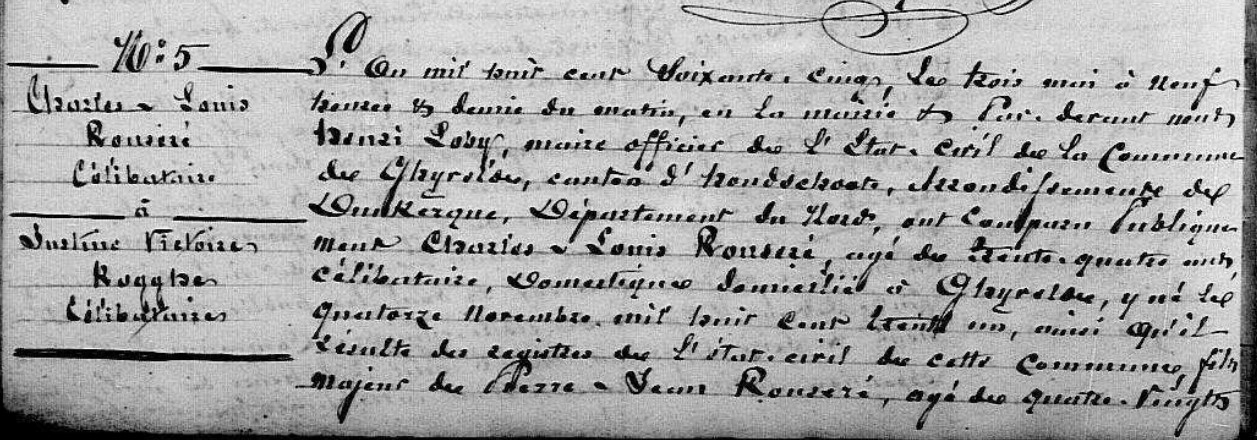 N° 5
Charles Louis
Rouseré
Célibataire
à
Justine Victoire
Rogghe
Célibataire
L'An mil huit cent soixante-cinq, le trois mai à neuf
heures & demie du matin, en la mairie & Par-devant nous
henri Loby, maire officier de l'Etat-civil de la Commune
de Ghyvelde, canton d'hondschoote, Arrondissement de
Dunkerque, Département du Nord, ont Comparu Publique
ment Charles Louis Rouseré, agé de trente-quatre ans,
célibataire, Domestique domicilié à Ghyvelde, y né le
quatorze Novembre mil huit cent trente un, ainsi qu'il
résulte des registres de l'état-civil de cette Commune, fils
majeur de Pierre Jean Rouseré, agé de quatre-Vingts